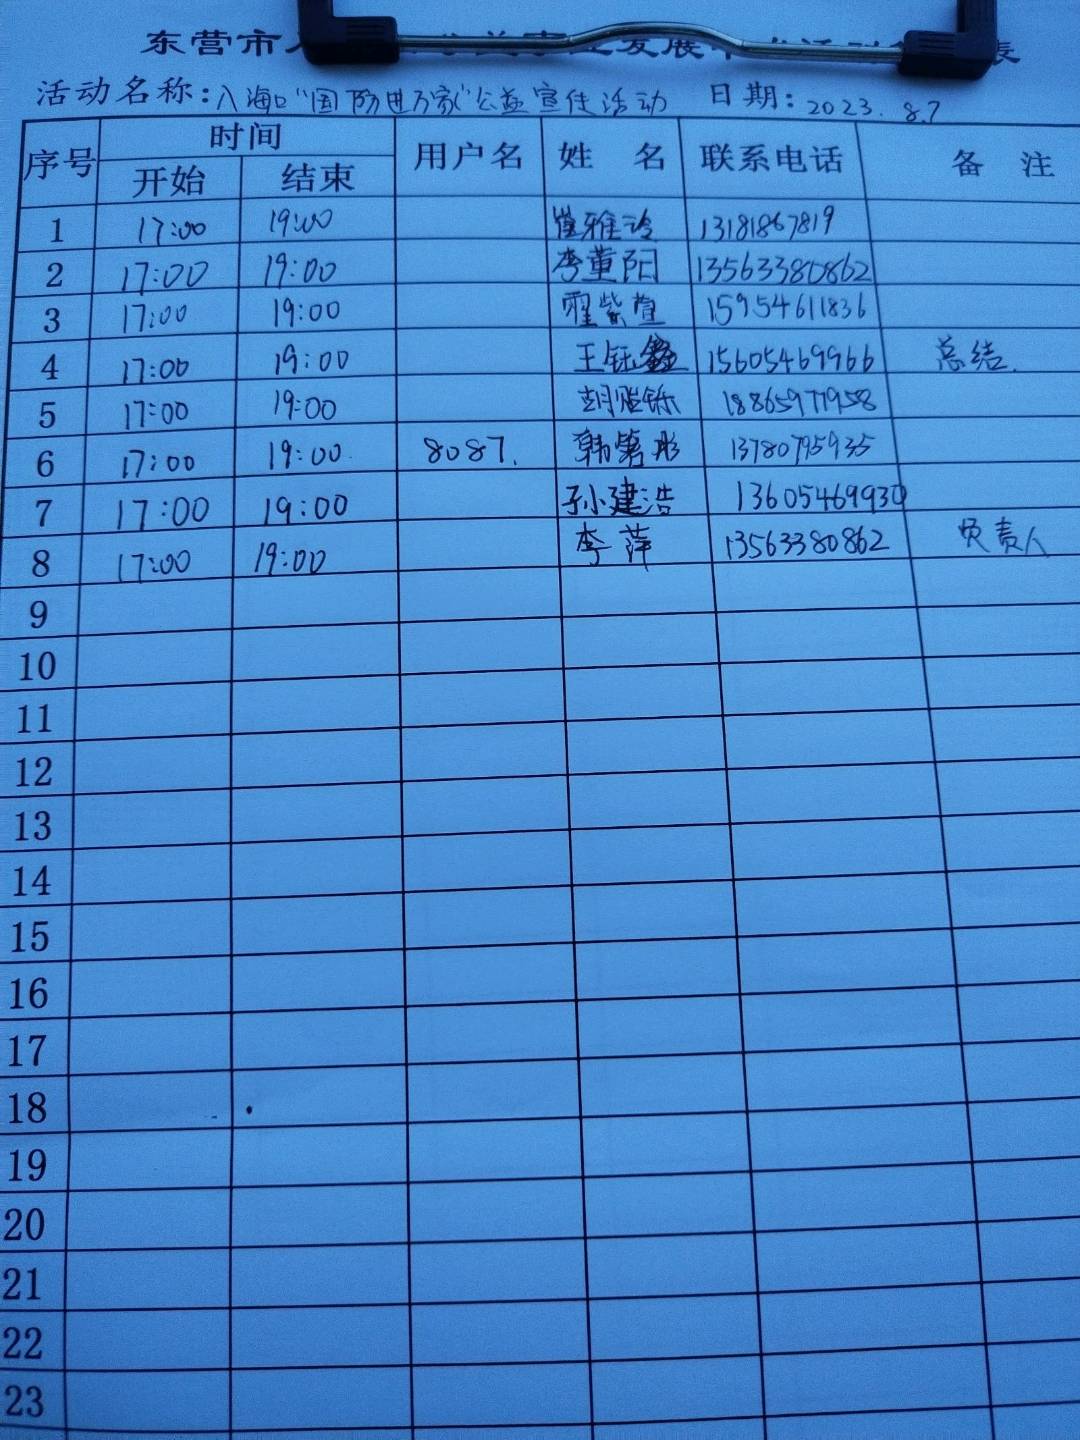 东营市
发展
表
活动名称：入海口"国防进万家"公益宣传活动 日期：2023.8.7
序号 时间 用户名 姓 名 联系电话 备 注
开始 结束
1 17:00 19:00 崔雅 13181867819
2 17:00 19:00 李董阳 13563380862
3 17:00 19:00 霍紫萱 15954611836
4 17:00 19:00 王钰鑫 15605469966 总结.
5 17:00 19:00 18865977958
6 17:00 19:00. 8087. 韩 彤 13780795935
7 17:00 19:00 孙建浩 13605469930
8 17:00 19:00 李萍 13563380862 负责人
9
10
11
12
13
14
15
16
17
18
19
20
21
22
23